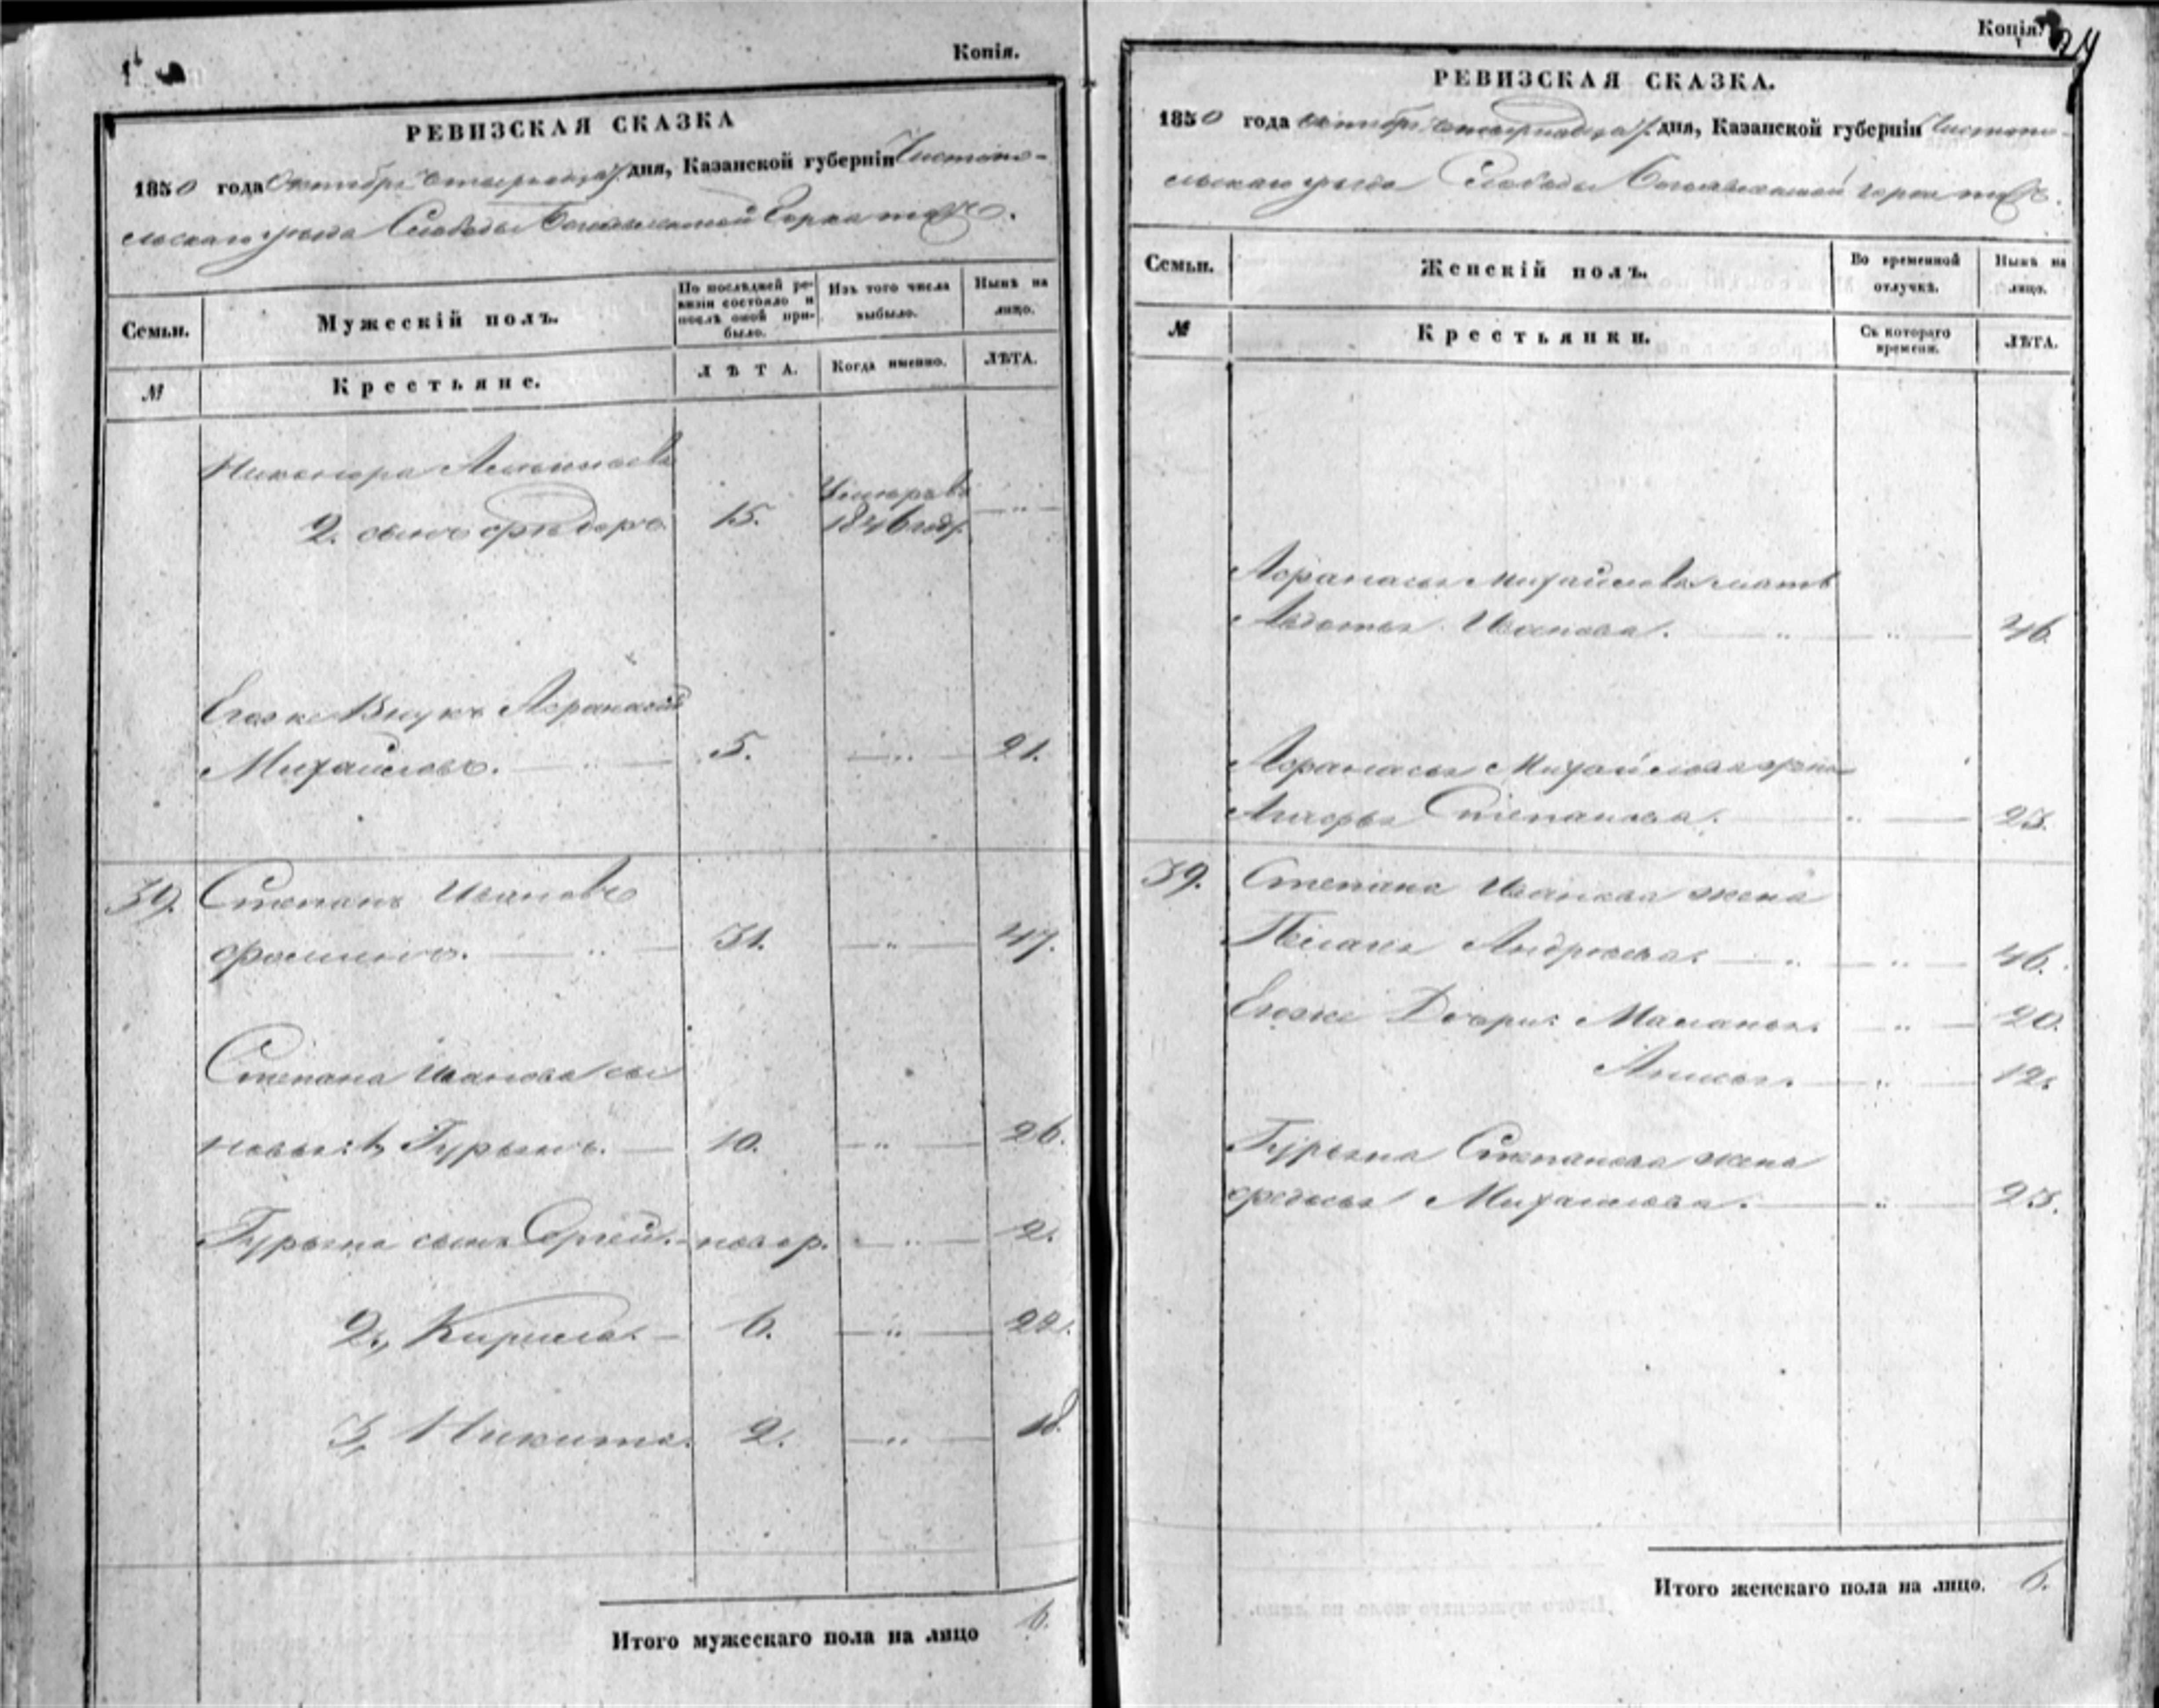 Копія.
РЕВИЗСКАЯ СКАЗКА
1850 года Октября дня, Казанской губерніи Чистопо-
льскаго уезда Слободы Богоявленской Горка тожъ.
Семьи.
Мужескій полъ.
По послѣдней ре-
визіи состояло и
послѣ оной при-
было.
Изъ того числа
выбыло.
Нынѣ на
лицо.
№
Крестьяне.
ЛѢТА.
Когда именно.
ЛѢТА.
Никонора
2. сынъ Фѣдоръ. 15. Умеръ въ 1846 году.
Егоже Внукъ Афанасій
Михайловъ. 5. 21.
39. Степанъ Ивановъ
Фоминъ. 31. 47.
Степана Иванова сы
новья: 1, Гурьянъ. 10. 26.
Гурьяна сынъ Сергей. новор. 2.
2, Кирила. 6. 22.
3, Никита. 2. 18.
Итого мужескаго пола на лицо 6.
Копія.
24
РЕВИЗСКАЯ СКАЗКА.
1850 года Октября дня, Казанской губерніи Чистопо-
льскаго уезда Слободы Богоявленской Горка тожъ.
Семьи.
Женскій полъ.
Во временной
отлучкѣ.
Нынѣ на
лицо.
№
Крестьянки.
Съ котораго
времени.
ЛѢТА.
Афанасья Михайлова мать
Авдотья Иванова. 46.
Афанасья Михайлова жена
Агафья Степанова. 23.
39. Степана Иванова жена
Пелагея Андреева. 46.
Егоже Дочери: Маланья. 20.
Анисья. 12.
Гурьяна Степанова жена
Федосья Михайлова. 23.
Итого женскаго пола на лицо. 6.